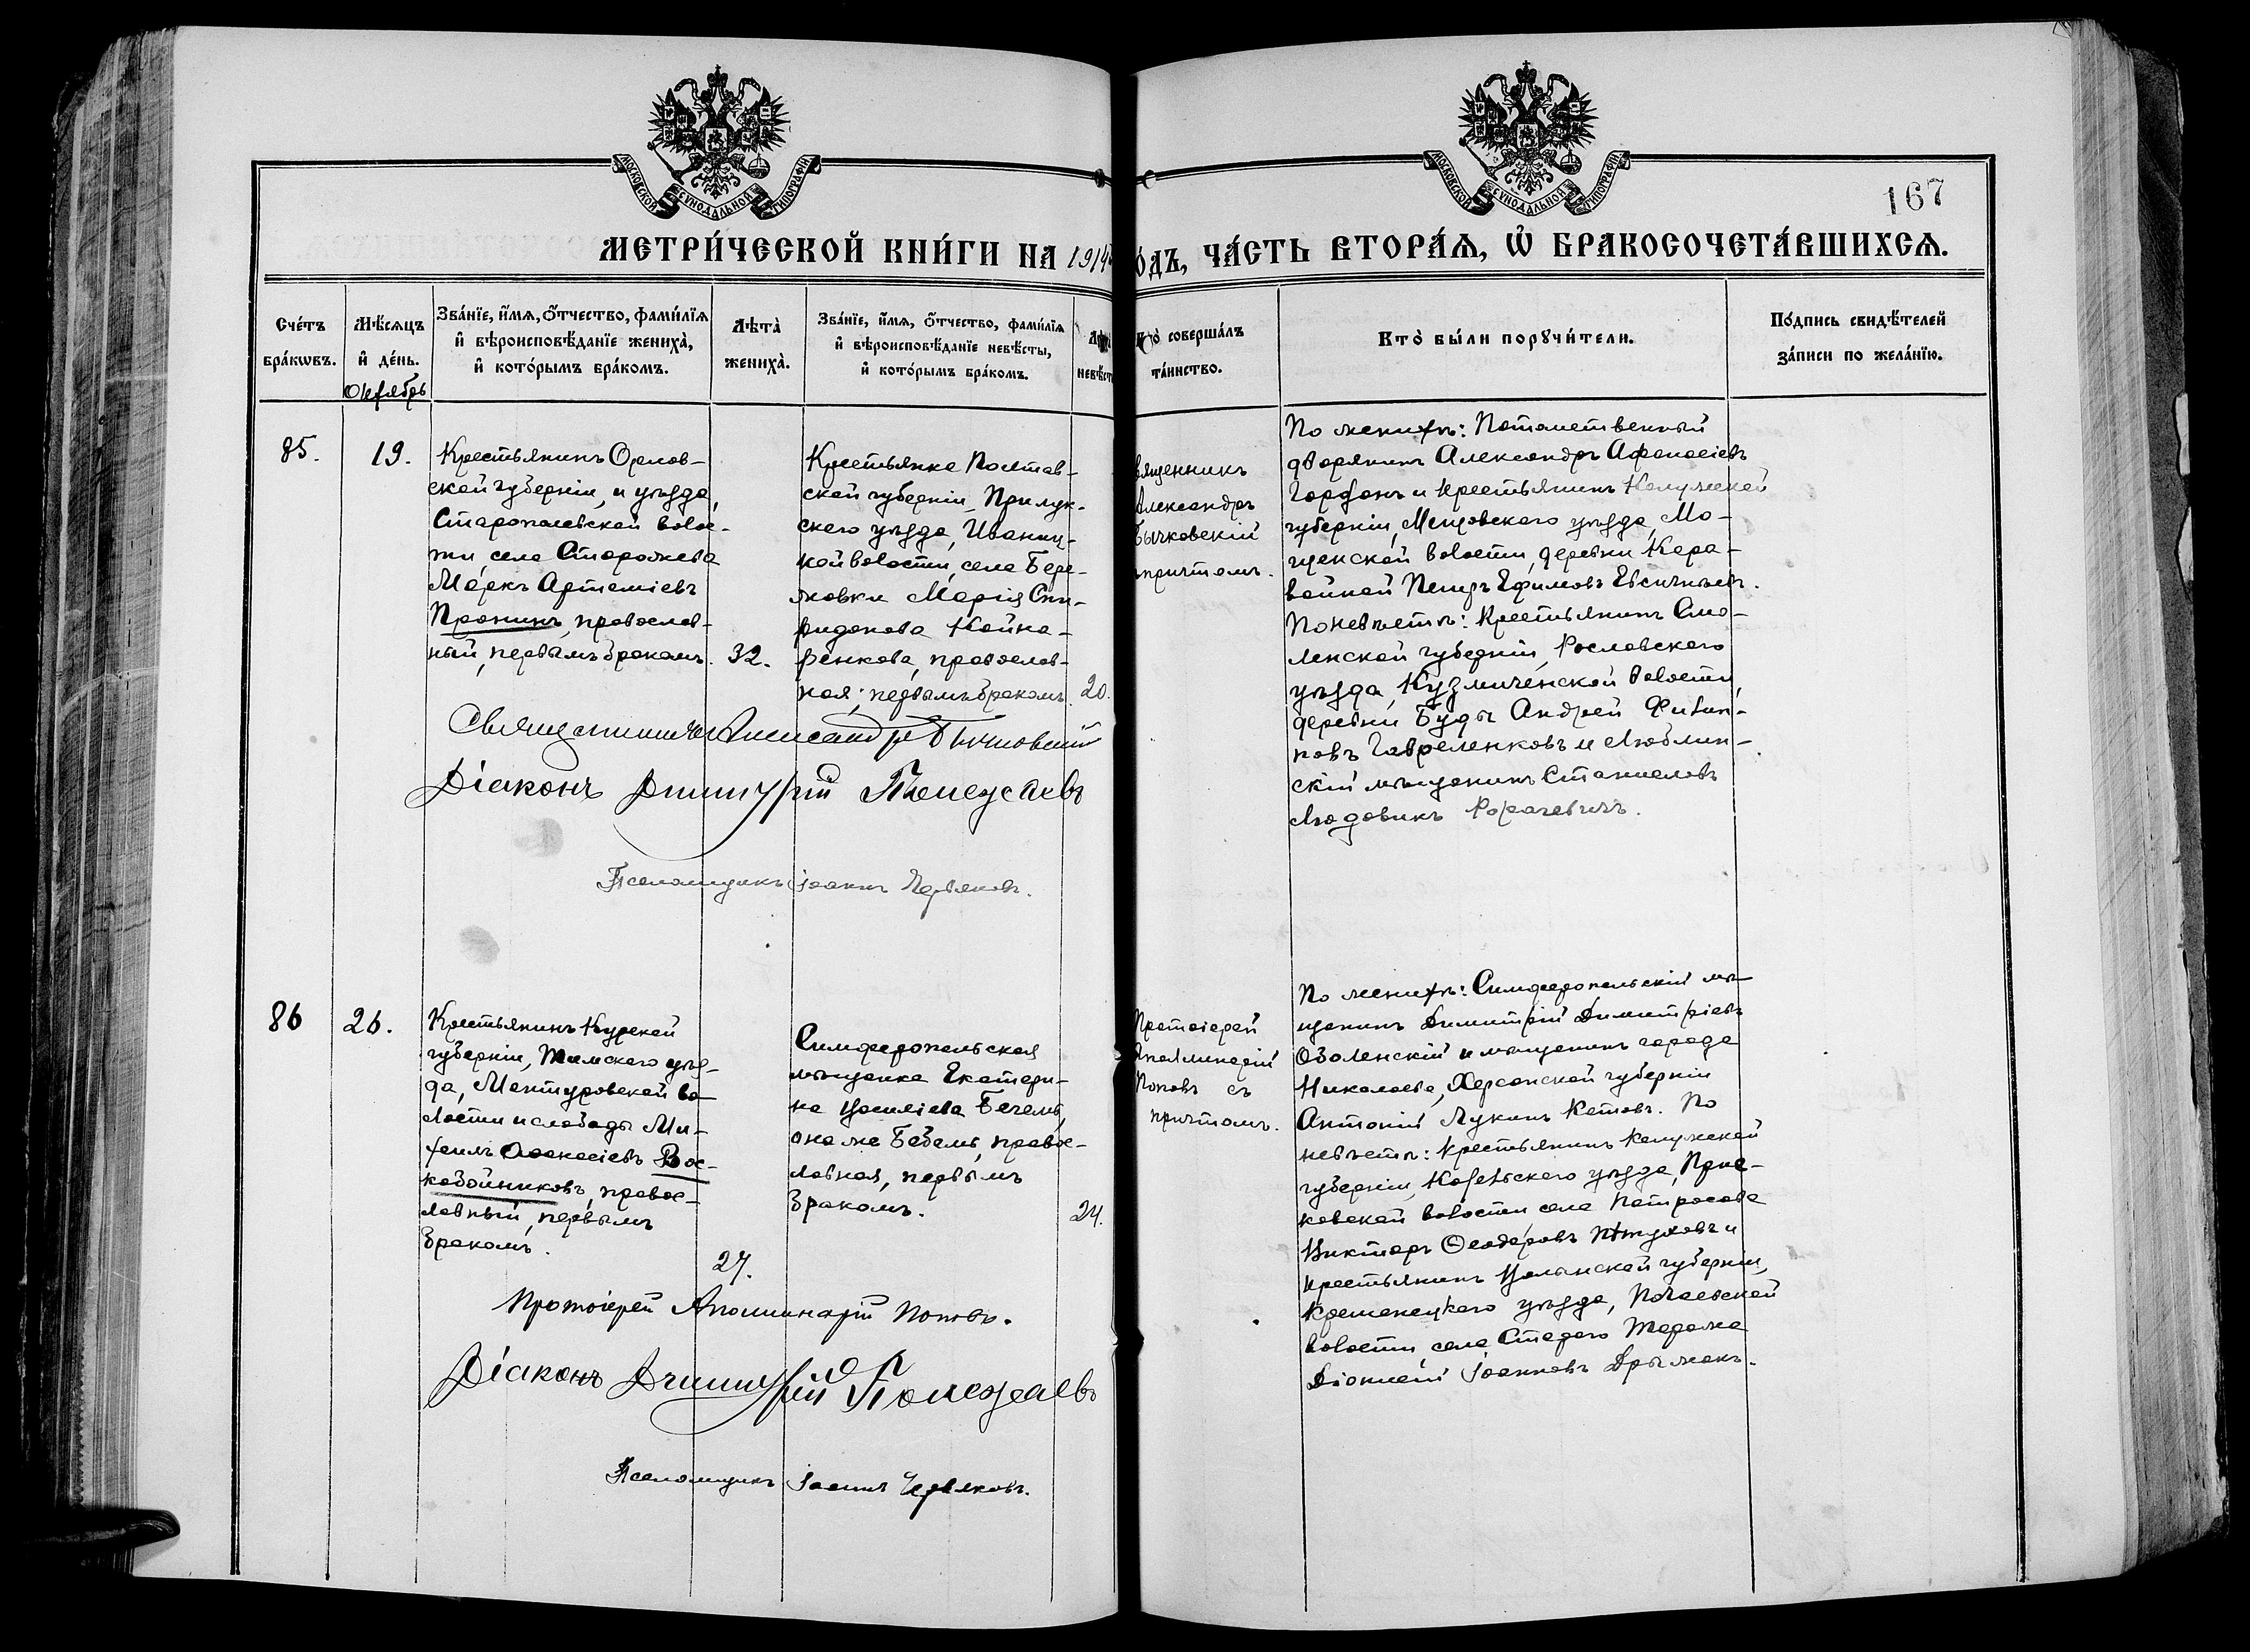 МОСКОВСКОЙ СѴНОДАЛЬНОЙ ТИПОГРАФІИ
МОСКОВСКОЙ СѴНОДАЛЬНОЙ ТИПОГРАФІИ
167
МЕТРИ́ЧЕСКОЙ КНИ́ГИ НА 1914
О́ДЪ, ЧА́СТЬ ВТОРА́Я, Ѡ҆ БРАКОСОЧЕТА́ВШИХСЯ.
Сче́тъ
бра́кѡвъ.
Мѣ́сяцъ
и҆ де́нь.
Октябрь
Зва́нїе, и҆́мя, ѻ҆́тчество, фами́лїя
и҆ вѣроисповѣ́данїе жениха̀,
и҆ кото́рымъ бра́комъ.
Лѣта̀
жениха̀.
Зва́нїе, и҆́мя, ѻ҆́тчество, фами́лїя
и҆ вѣроисповѣ́данїе невѣ́сты,
и҆ кото́рымъ бра́комъ.
невѣ́ст
то̀ соверша́лъ
та́инство.
Кто̀ бы́ли порꙋчи́тели.
По́дпись свидѣ́телей
за́писи по жела́нїю.
85.
19.
Крестьянинъ Орлов-
ской губерніи, и уѣзда,
волос-
ти, села Сторожева
Маркъ Артеміевъ
Пронинъ, православ-
ный, первымъ бракомъ.
32.
Крестьянка Полтав-
ской губерніи, Прилук-
скаго уѣзда, Иваниц-
кой волости, села Бере-
зовки Марія Спи-
ридонова Койна-
шенкова, православ-
ная, первымъ бракомъ.
20.
вященникъ
Александръ
Бычковскій
причтомъ.
По женихѣ: Потомственный
дворянинъ Александръ Афанасіевъ
Гордонъ и крестьянинъ Калужской
губерніи, Мещовскаго уѣзда, Мо-
щенской волости, деревни Кара-
вайной Петръ Ефимовъ Евсигнѣевъ.
По невѣстѣ: крестьянинъ Смо-
ленской губерніи, Рославскаго
уѣзда, Кузмиченской волости,
деревни Буды Андрей Филип-
повъ Гавреленковъ и Люблин-
скій мѣщанинъ Станислав
Людовикъ
Священникъ Александръ Бычковскій
Діаконъ Димитрій Полежаевъ
Псаломщикъ Іоаннъ Червяковъ.
86
26.
Крестьянинъ Курской
губерніи, Тимскаго уѣз-
да, Мантуровской во-
лости и слободы Ми-
хаилъ Аѳанасіевъ Вос-
кобойниковъ, правос-
лавный, первымъ
бракомъ.
27.
Симферопольская
мѣщанка Екатери-
на Василіева Бечель,
она же Бабель, правос-
лавная, первымъ
бракомъ.
24.
Протоіерей
Аполлинарій
Поповъ съ
причтомъ.
По женихѣ: Симферопольскій мѣ-
щанинъ Димитрій Димитріевъ
Оболенскій и мѣщанинъ города
Николаева, Херсонской губерніи
Антоній Лукинъ Котовъ. По
невѣстѣ: крестьянинъ Калужской
губерніи, Козельскаго уѣзда, Прыс-
ковской волости села Патросова
Викторъ Ѳеодоровъ Пѣтуховъ и
крестьянинъ Волынской губерніи,
Кременецкаго уѣзда, Почаевской
волости, села Стараго Таража
Діонисій Іоанновъ Дрыжакъ.
Протоіерей Аполлинарій Поповъ.
Діаконъ Димитрій Полежаевъ
Псаломщикъ Іоаннъ Червяковъ.